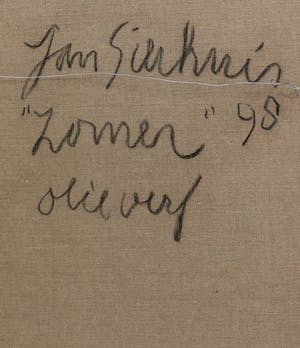 Jan Sierhuis
"Zomer" 98
olieverf